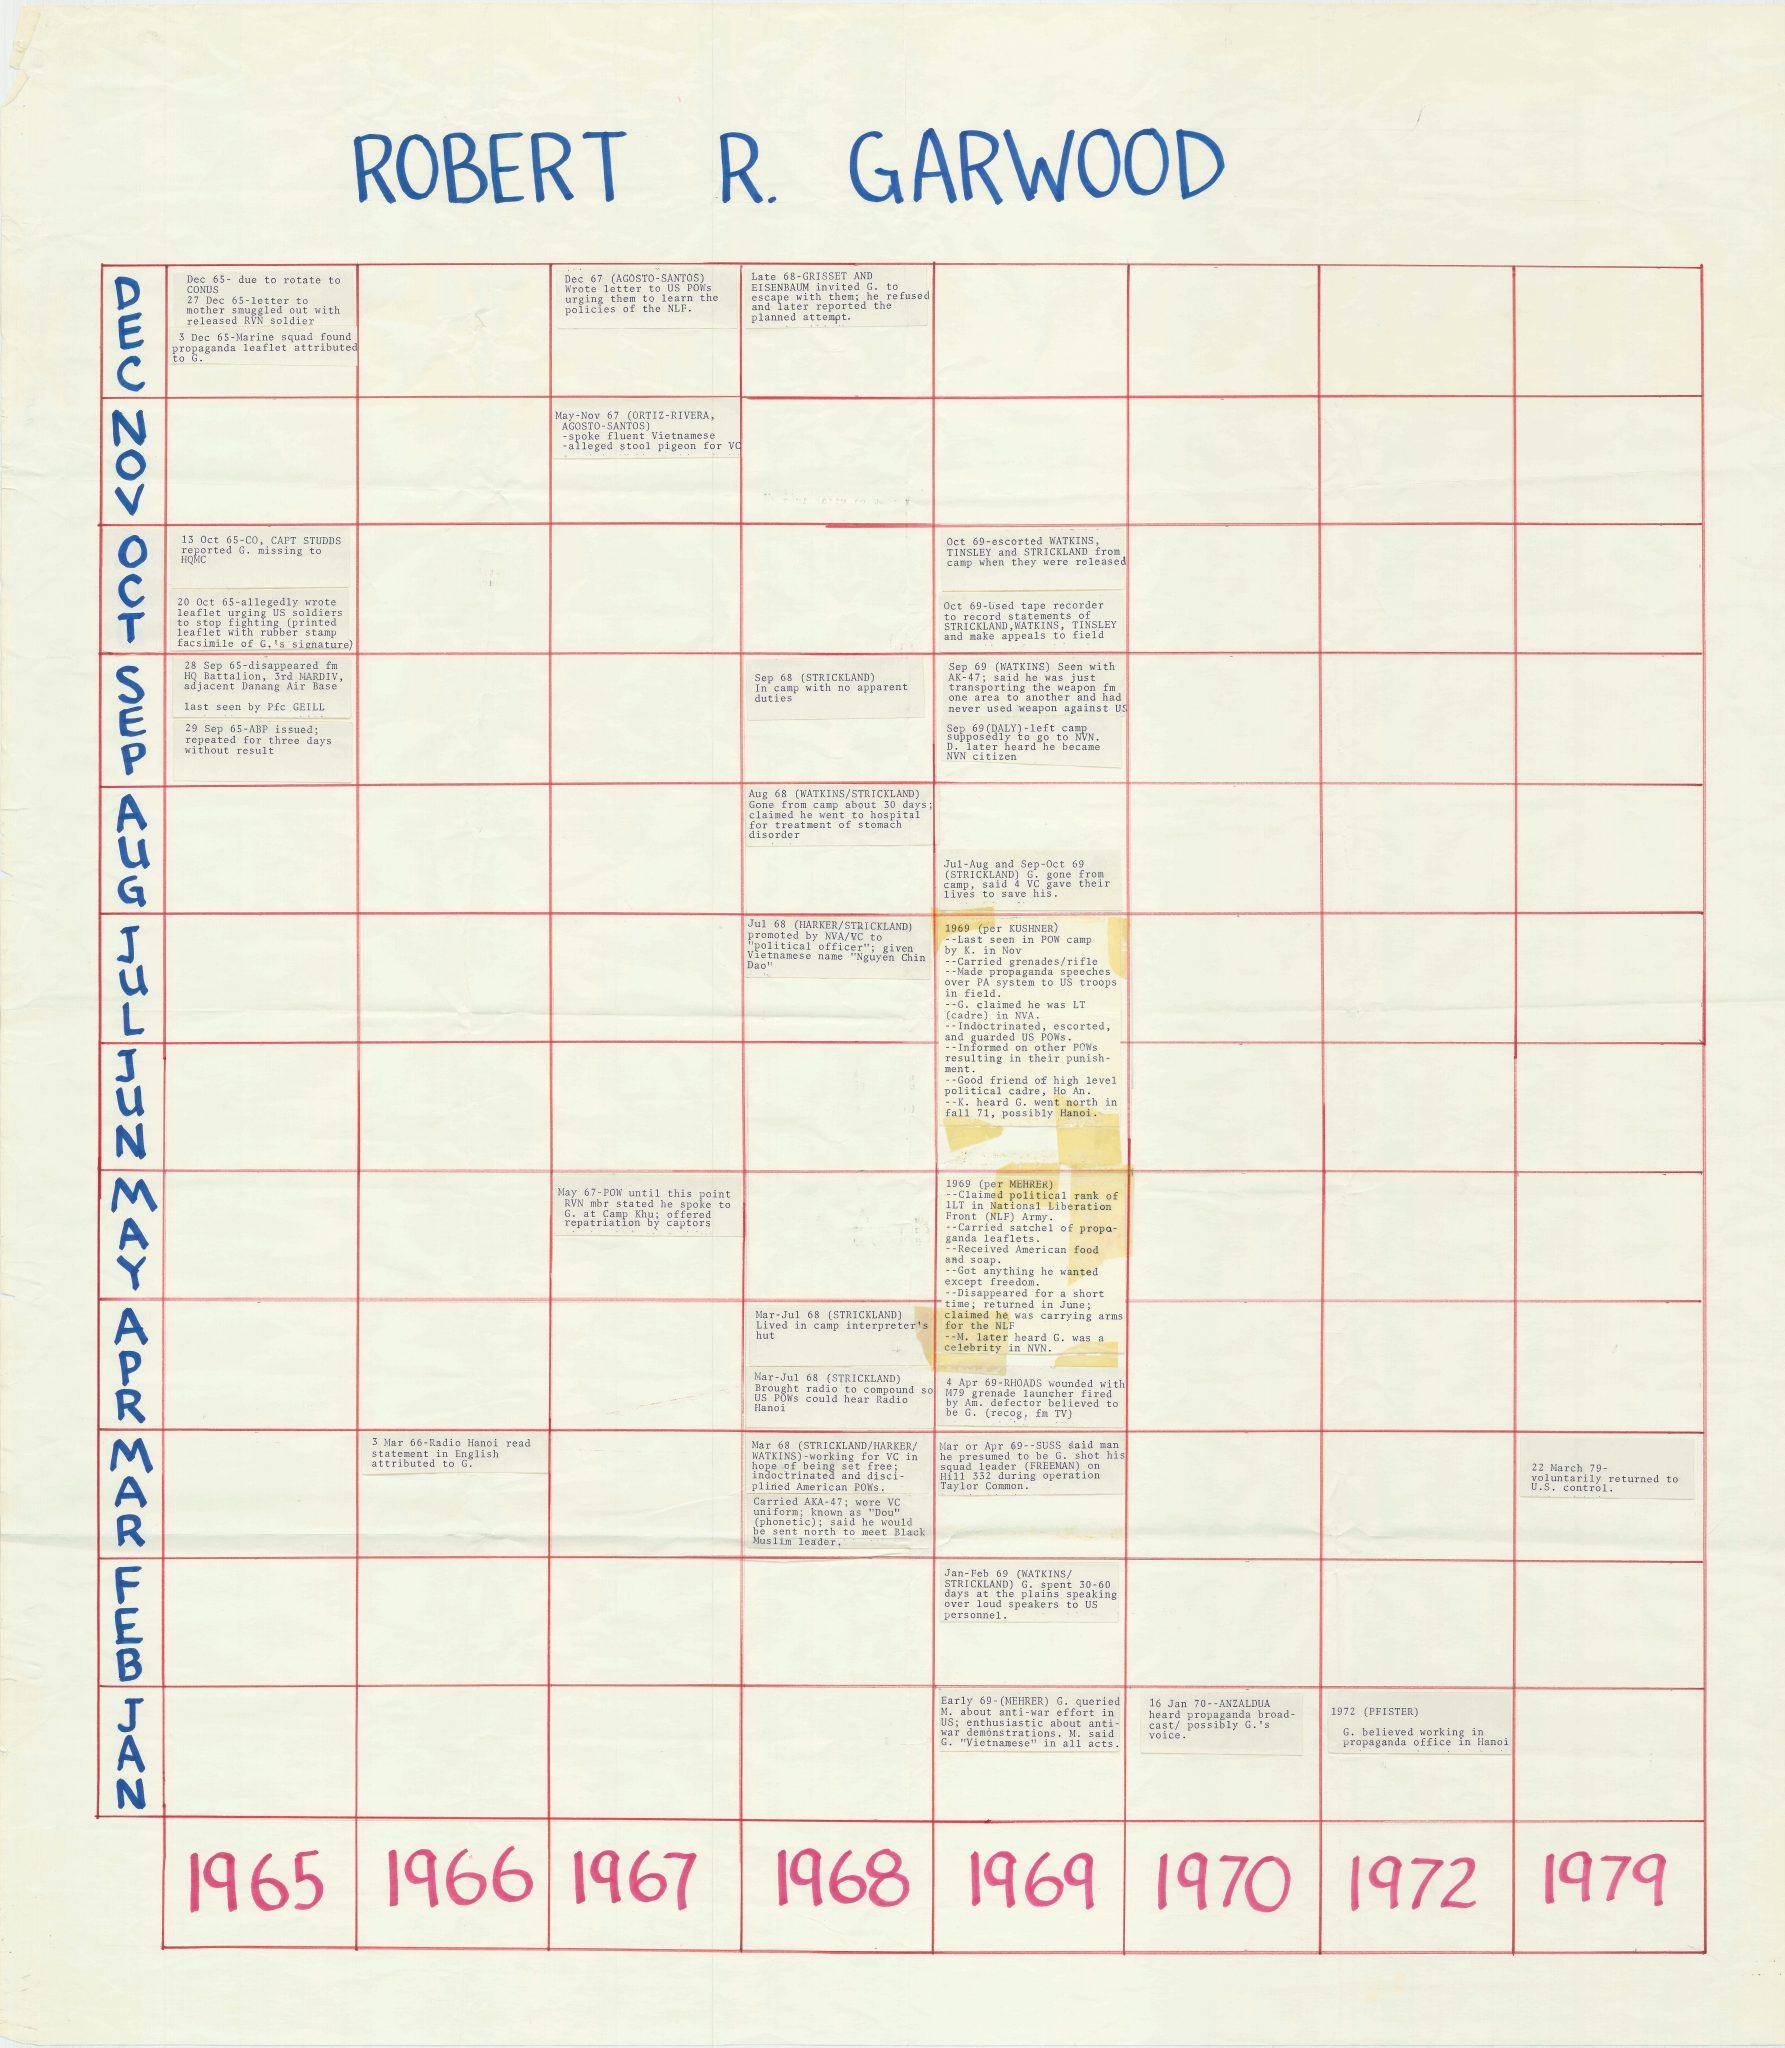 ROBERT R. GARWOOD
DEC
Dec 65- due to rotate to
CONUS
27 Dec 65-letter to
mother smuggled out with
released RVN soldier
3 Dec 65-Marine squad found
propaganda leaflet attributed
to G.
Dec 67 (AGOSTO-SANTOS)
Wrote letter to US POWs
urging them to learn the
policies of the NLF.
Late 68-GRISSET AND
EISENBAUM invited G. to
escape with them; he refused
and later reported the
planned attempt.
NOV
May-Nov 67 (ORTIZ-RIVERA,
AGOSTO-SANTOS)
-spoke fluent Vietnamese
-alleged stool pigeon for VC
OCT
13 Oct 65-CO, CAPT STUDDS
reported G. missing to
HQMC
20 Oct 65-allegedly wrote
leaflet urging US soldiers
to stop fighting (printed
leaflet with rubber stamp
facsimile of G.'s signature)
Oct 69-escorted WATKINS,
TINSLEY and STRICKLAND from
camp when they were released
Oct 69-Used tape recorder
to record statements of
STRICKLAND,WATKINS, TINSLEY
and make appeals to field
SEP
28 Sep 65-disappeared fm
HQ Battalion, 3rd MARDIV,
adjacent Danang Air Base
last seen by Pfc GEILL
29 Sep 65-ABP issued;
repeated for three days
without result
Sep 68 (STRICKLAND)
In camp with no apparent
duties
Sep 69 (WATKINS) Seen with
AK-47; said he was just
transporting the weapon fm
one area to another and had
never used weapon against US
Sep 69(DALY)-left camp
supposedly to go to NVN.
D. later heard he became
NVN citizen
AUG
Aug 68 (WATKINS/STRICKLAND)
Gone from camp about 30 days;
claimed he went to hospital
for treatment of stomach
disorder
Jul-Aug and Sep-Oct 69
(STRICKLAND) G. gone from
camp, said 4 VC gave their
lives to save his.
JUL
Jul 68 (HARKER/STRICKLAND)
promoted by NVA/VC to
"political officer"; given
Vietnamese name "Nguyen Chin
Dao"
1969 (per KUSHNER)
--Last seen in POW camp
by K. in Nov
--Carried grenades/rifle
--Made propaganda speeches
over PA system to US troops
in field.
--G. claimed he was LT
(cadre) in NVA.
--Indoctrinated, escorted,
and guarded US POWs.
--Informed on other POWs
resulting in their punish-
ment.
--Good friend of high level
political cadre, Ho An.
--K. heard G. went north in
fall 71, possibly Hanoi.
JUN
MAY
May 67-POW until this point
RVN mbr stated he spoke to
G. at Camp Khu; offered
repatriation by captors
1969 (per MEHRER)
--Claimed political rank of
1LT in National Liberation
Front (NLF) Army.
--Carried satchel of propa-
ganda leaflets.
--Received American food
and soap.
--Got anything he wanted
except freedom.
--Disappeared for a short
time; returned in June;
claimed he was carrying arms
for the NLF
--M. later heard G. was a
celebrity in NVN.
APR
Mar-Jul 68 (STRICKLAND)
Lived in camp interpreter's
hut
Mar-Jul 68 (STRICKLAND)
Brought radio to compound so
US POWs could hear Radio
Hanoi
4 Apr 69-RHOADS wounded with
M79 grenade launcher fired
by Am. defector believed to
be G. (recog. fm TV)
MAR
3 Mar 66-Radio Hanoi read
statement in English
attributed to G.
Mar 68 (STRICKLAND/HARKER/
WATKINS)-working for VC in
hope of being set free;
indoctrinated and disci-
plined American POWs.
Carried AKA-47; wore VC
uniform; known as "Dou"
(phonetic); said he would
be sent north to meet Black
Muslim leader.
Mar or Apr 69--SUSS said man
he presumed to be G. shot his
squad leader (FREEMAN) on
Hill 332 during operation
Taylor Common.
22 March 79-
voluntarily returned to
U.S. control.
FEB
Jan-Feb 69 (WATKINS/
STRICKLAND) G. spent 30-60
days at the plains speaking
over loud speakers to US
personnel.
JAN
Early 69-(MEHRER) G. queried
M. about anti-war effort in
US; enthusiastic about anti-
war demonstrations. M. said
G. "Vietnamese" in all acts.
16 Jan 70--ANZALDUA
heard propaganda broad-
cast/ possibly G.'s
voice.
1972 (PFISTER)
G. believed working in
propaganda office in Hanoi
1965 1966 1967 1968 1969 1970 1972 1979